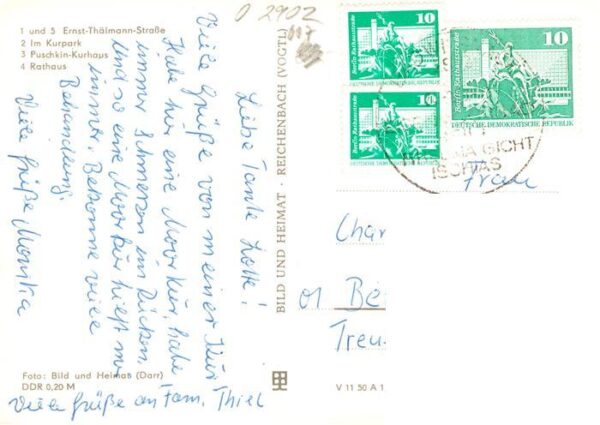 1 und 5 Ernst-Thälmann-Straße
2 Im Kurpark
3 Puschkin-Kurhaus
4 Rathaus
O 2902
Liebe Tante Lotte!
Viele Grüße von meiner Kur
Habe hier eine Moorkur, habe
immer Schmerzen im Rücken,
und so eine Moorkur hielft mir
immer. Bekomme viele
Behandlung.
Viele Grüße Monika
Viele Grüße an Fam. Thiel
Foto: Bild und Heimat (Darr)
DDR 0,20 M
BILD UND HEIMAT · REICHENBACH (VOGTL)
V 11 50 A 1
10
Berlin, Rathausstraße
DEUTSCHE DEMOKRATISCHE REPUBLIK
10
Berlin, Rathausstraße
DEUTSCHE DEMOKRATISCHE REPUBLIK
10
Berlin, Rathausstraße
DEUTSCHE DEMOKRATISCHE REPUBLIK
GICHT
ISCHIAS
Frau
Char
01 Be
Treu